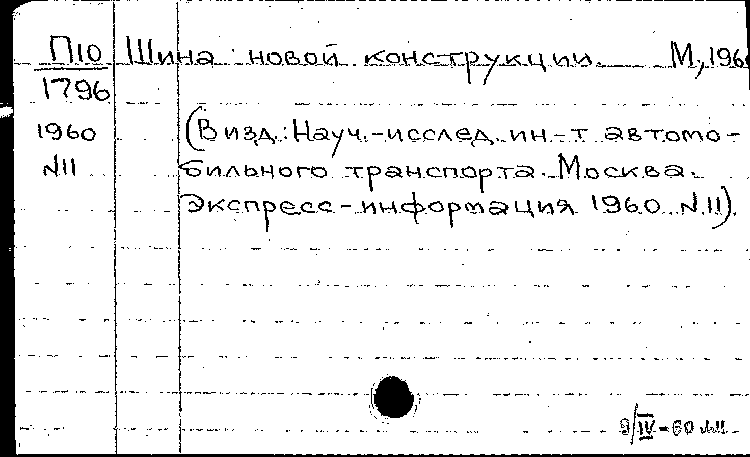 П10 Шина новой конструкции. М, 196
1796
1960 (В изд.: Науч.-исслед. ин-т автомо-
N11 бильного транспорта. Москва.
Экспресс-информация 1960 N.11).
9/IV-60